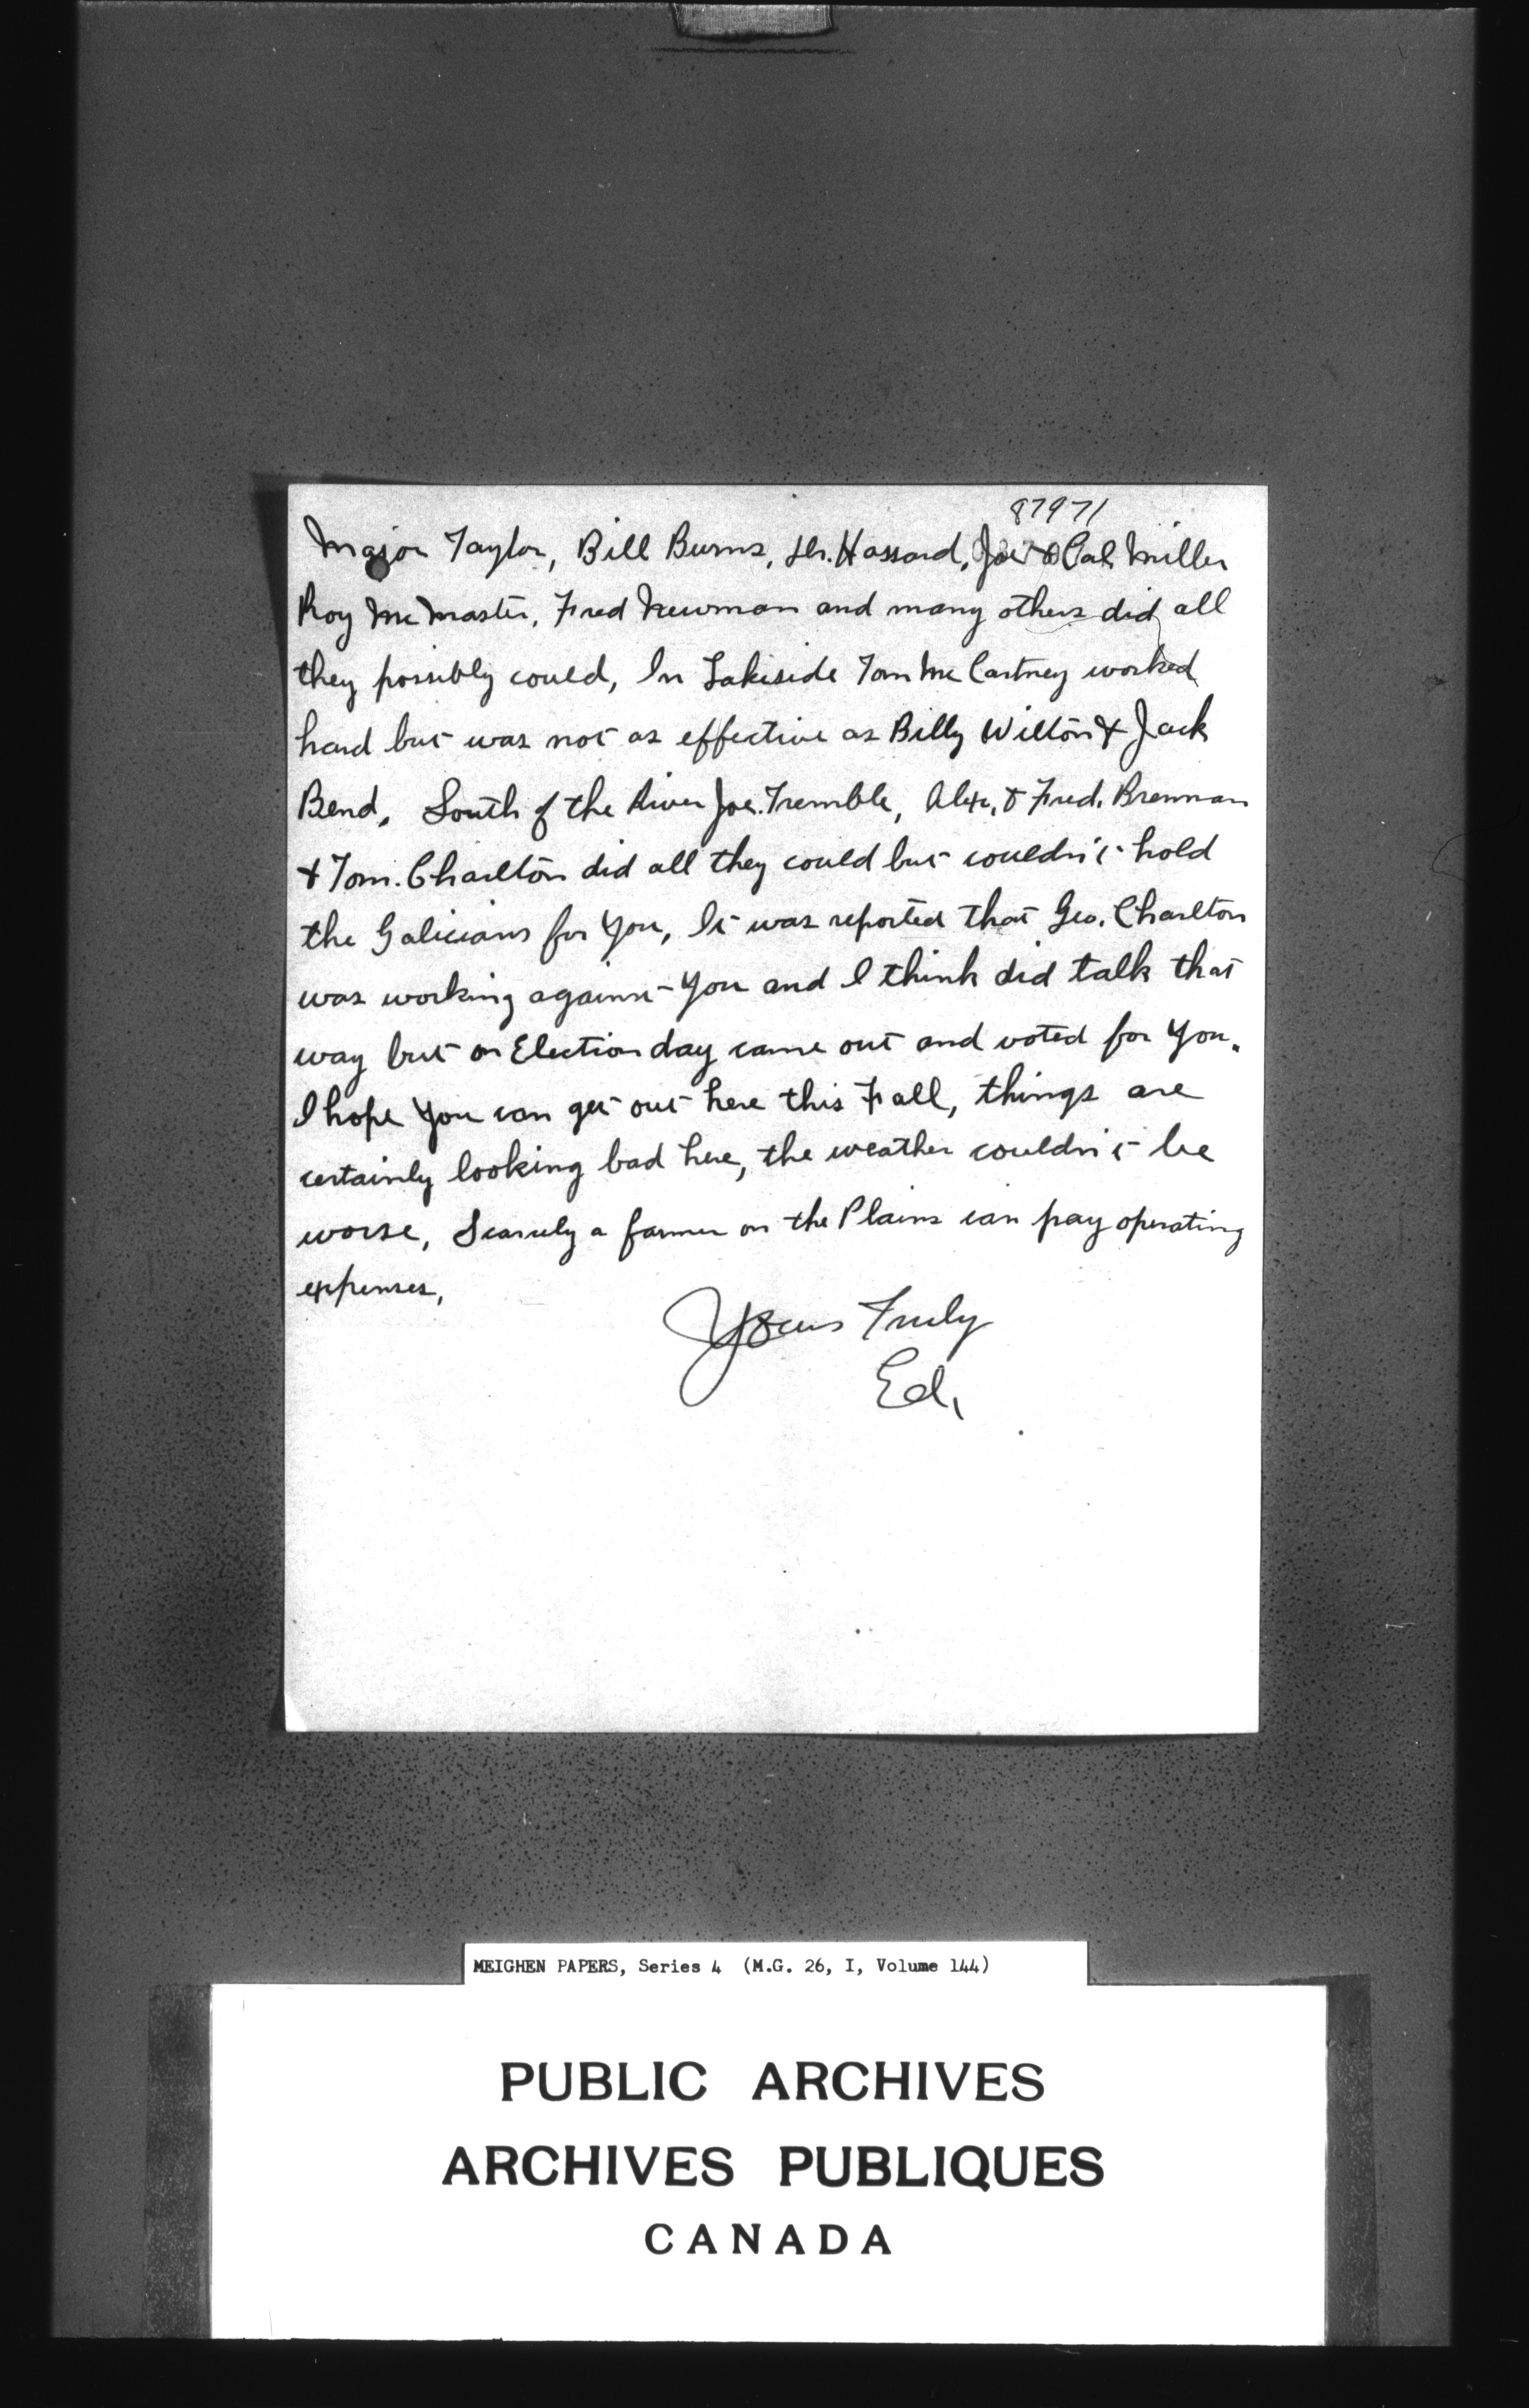 87971
Major Taylor, Bill Burns, Dr. Hassard, Joe & Cal Miller
Roy McMaster, Fred Newman and many others did all
they possibly could, In Lakeside Tom McCartney worked
hard but was not as effective as Billy Wilton & Jack
Bend. South of the River Joe. Tremble, Alex, & Fred. Brennan
& Tom. Charlton did all they could but couldn't hold
the Galicians for You, It was reported that Geo. Charlton
was working against You and I think did talk that
way but on Election day came out and voted for You.
I hope You can get out here this Fall, things are
certainly looking bad here, the weather couldn't be
worse, Scarcely a farmer on the Plains can pay operating
expenses,
Yours Truly
Ed,
MEIGHEN PAPERS, Series 4 (M.G. 26, I, Volume 144)
PUBLIC ARCHIVES
ARCHIVES PUBLIQUES
CANADA